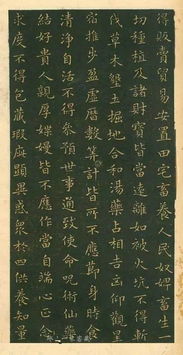 得販賣貿易安置田宅畜養人民奴婢畜生一
切種植及諸財寶皆當遠離如被火坑不得斬
伐草木墾土掘地合和湯藥占相吉凶仰觀星
宿推步盈虛曆數筭計皆所不應節身時食
清淨自活不得參預世事通致使命呪術仙藥
結好貴人親厚媟嫚皆不應作當自端心正念
求度不得包藏瑕疵顯異惑衆於四供養知量